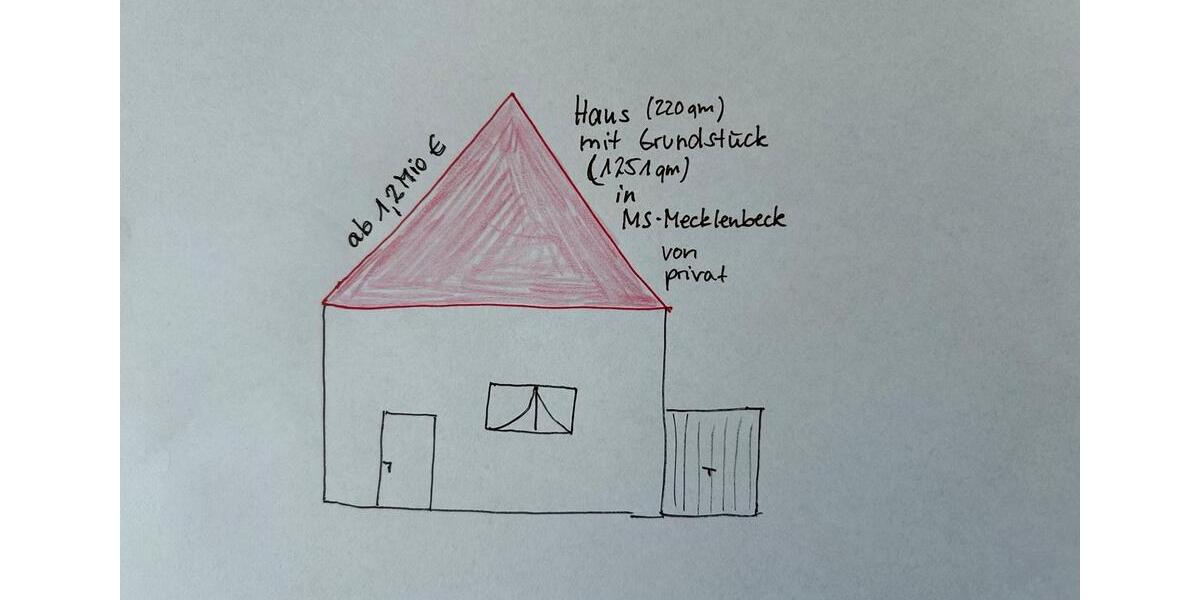 ab 1,2 Mio €
Haus (220qm)
mit Grundstück
(1251qm)
in
MS-Mecklenbeck
von
privat